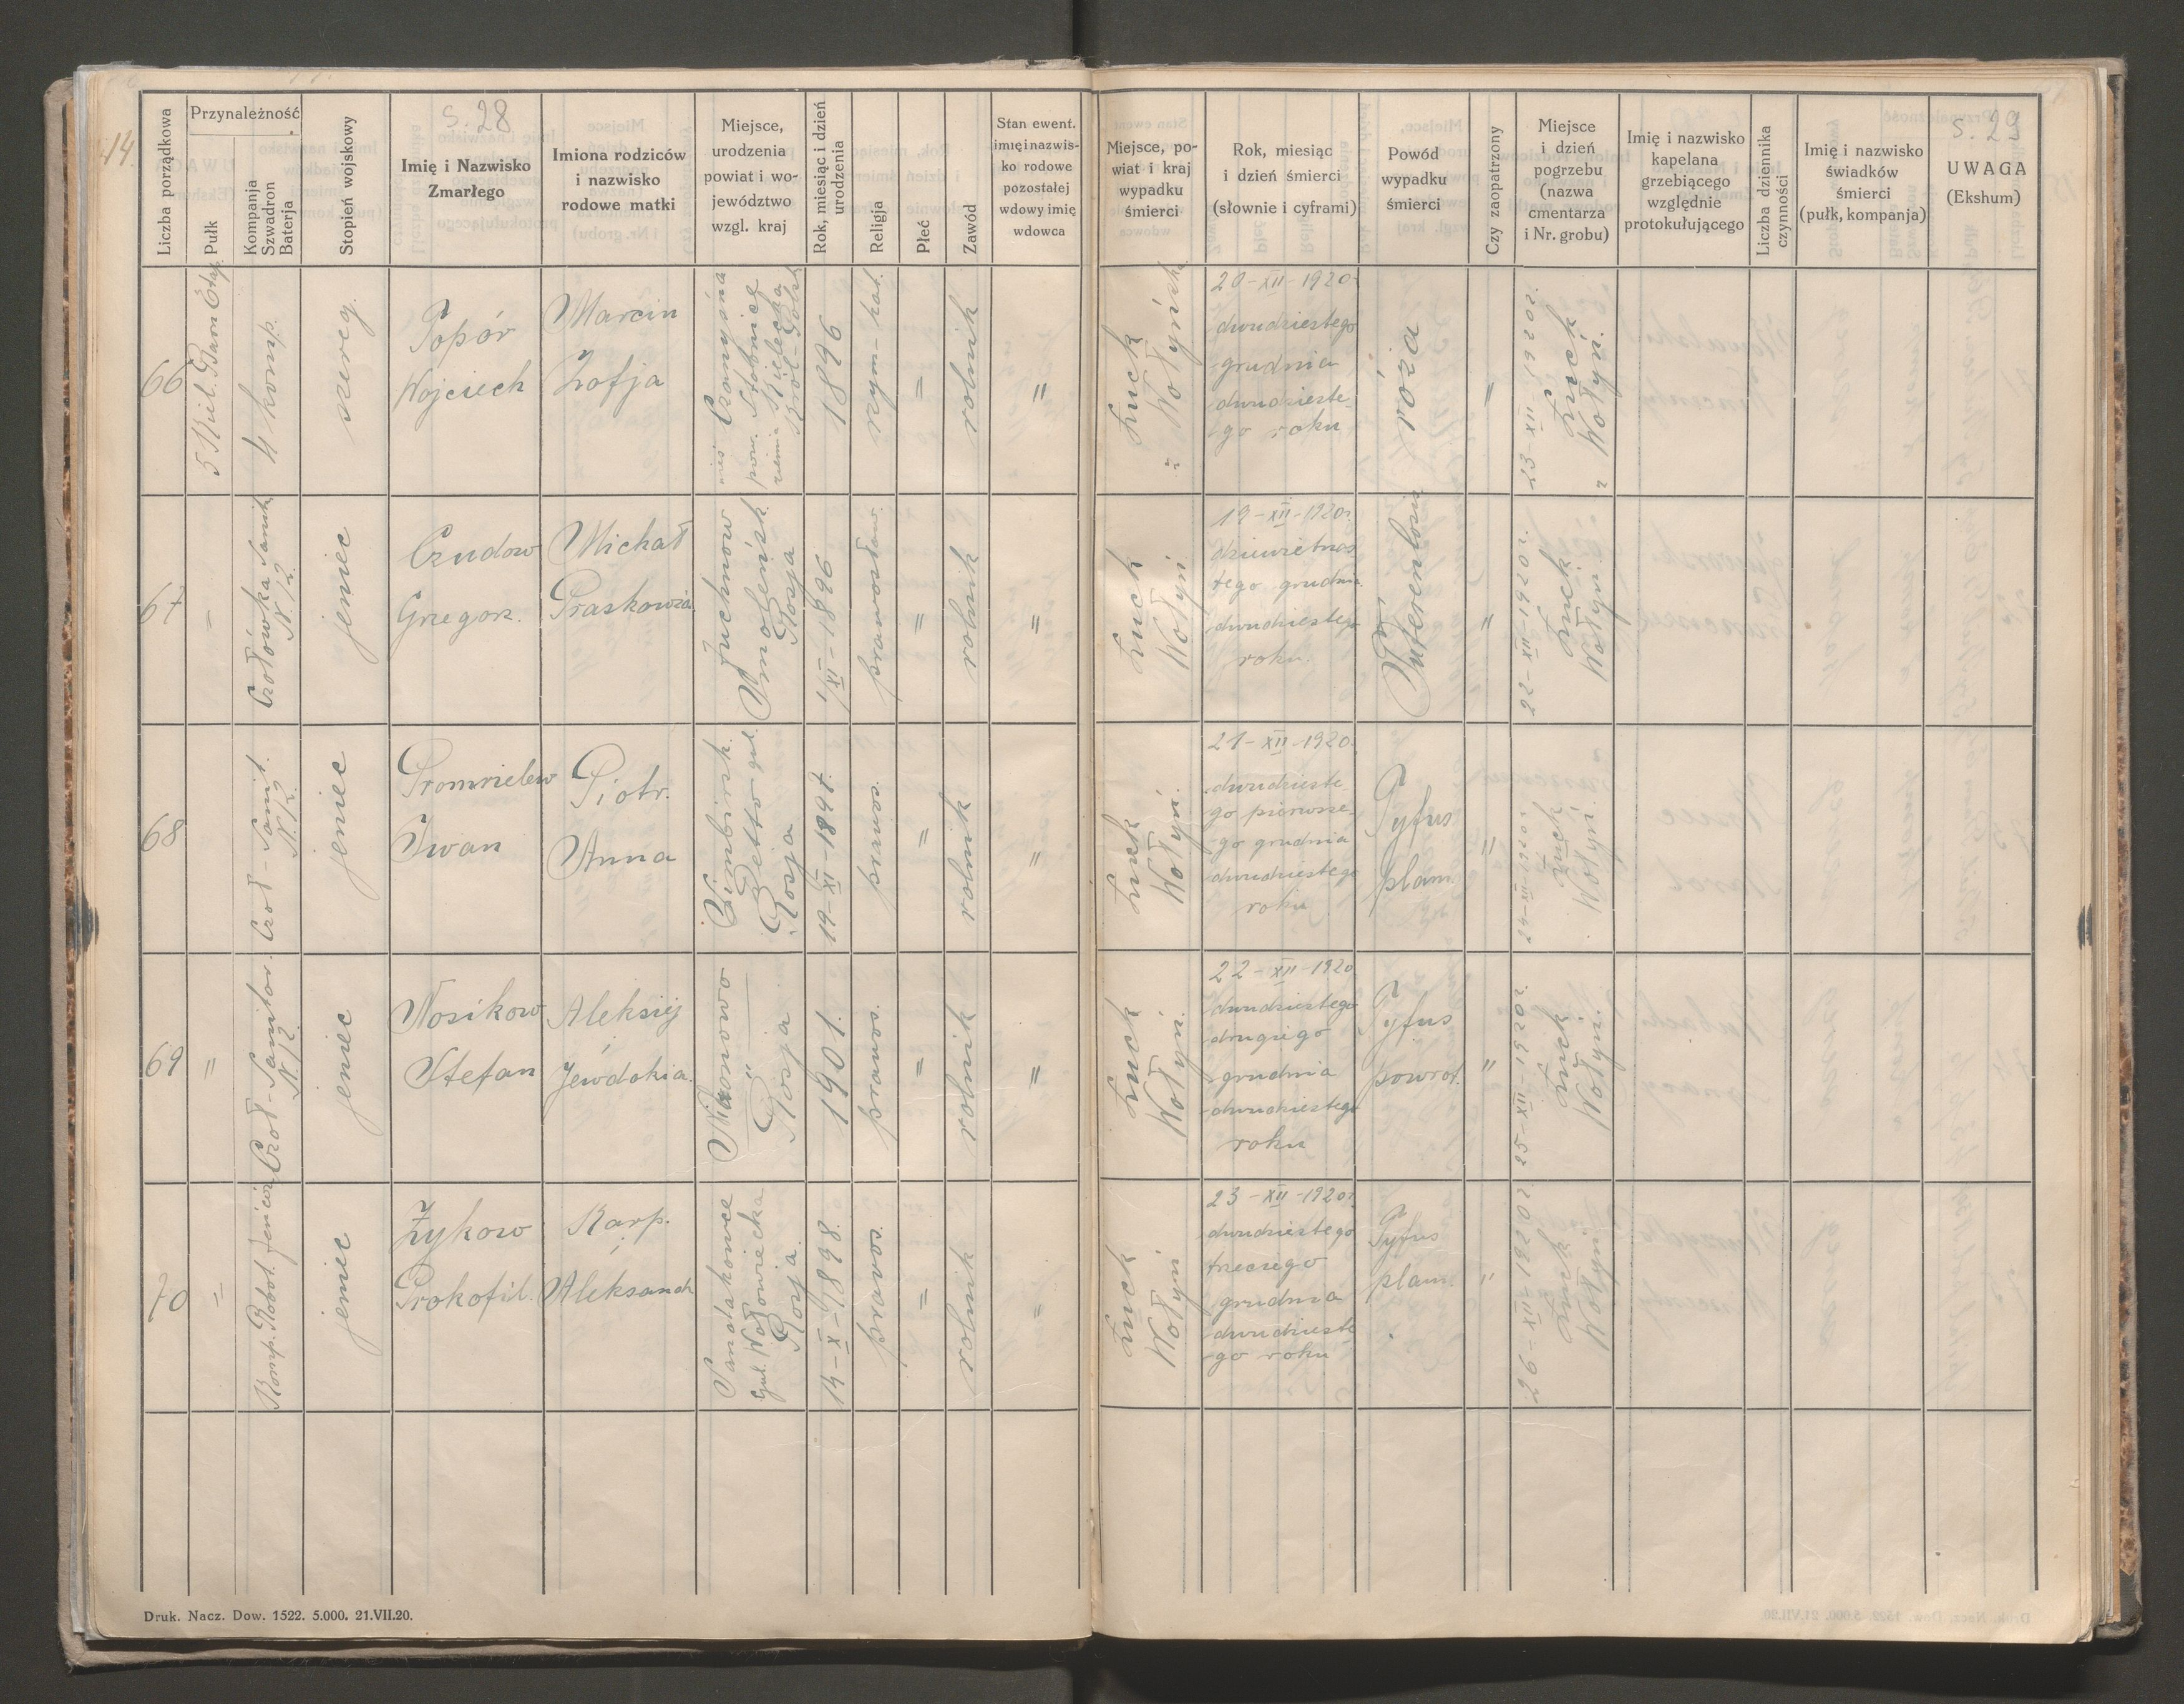 14.
s. 28
Liczba porządkowa
Przynależność
Pułk
Kompanja
Szwadron
Baterja
Stopień wojskowy
Imię i Nazwisko
Zmarłego
Imiona rodziców
i nazwisko
rodowe matki
Miejsce,
urodzenia
powiat i wo-
jewództwo
wzgl. kraj
Rok, miesiąc i dzień
urodzenia
Religja
Płeć
Zawód
Stan ewent.
imię i nazwis-
ko rodowe
pozostałej
wdowy imię
wdowca
Miejsce, po-
wiat i kraj
wypadku
śmierci
Rok, miesiąc
i dzień śmierci
(słownie i cyframi)
Powód
wypadku
śmierci
Czy zaopatrzony
Miejsce
i dzień
pogrzebu
(nazwa
cmentarza
i Nr. grobu)
Imię i nazwisko
kapelana
grzebiącego
względnie
protokułującego
Liczba dziennika
czynności
Imię i nazwisko
świadków
śmierci
(pułk, kompanja)
s. 29
UWAGA
(Ekshum)
66
4 komp.
szereg.
Topór
Wojciech
Marcin
Zofja
pow. Stobnice
ziemia Kielecka
1896
rzym-kat.
"
rolnik
"
Łuck
20-XII-1920r.
dwudziestego
grudnia
dwudzieste-
go roku
róża
"
23-XII-1920r.
Łuck
Wołyń.
67
"
Czołówka Sanit.
N. 12.
jeniec
Czudow
Grzegorz.
Michał
Praskowia
Juchnow
Smoleńsk.
Rosja
1/XI-1896
prawosław.
"
rolnik
"
Łuck
Wołyń
19-XII-1920r.
dziewiętnas-
tego grudnia
dwudziestego
roku.
"
22-XII-1920r.
Łuck
Wołyń.
68
Czoł-Sanit.
N. 12.
jeniec
Iwan
Piotr.
Anna
Simbirsk.
Rosja
19-XI-1897.
prawos.
"
rolnik
"
Łuck
Wołyń.
21-XII-1920.
dwudzieste
go pierwsze-
go grudnia
dwudziestego
roku
Tyfus
plam.
"
24-XII-1920r.
Łuck
Wołyń.
69
"
Czoł-Sanitar.
N. 12.
jeniec
Nosikow
Stefan
Aleksiej
Jewdokia.
"
Rosja
1901.
prawos.
"
rolnik
"
Łuck
Wołyń.
22-XII-1920
dwudziestego
drugiego
grudnia
dwudziestego
roku
Tyfus
powrot.
"
25-XII-1920r.
Łuck
Wołyń.
70
"
Komp. Robot. Jeńców
jeniec
Zykow
Prokofil.
Karp.
Aleksandr
Rosja.
14-X-1898.
prawos.
"
rolnik
"
Łuck
Wołyń
23-XII-1920r.
dwudziestego
trzeciego
grudnia
dwudzieste
go roku
Tyfus
plam.
"
26-XII-1920r.
Łuck
Wołyń
Druk. Nacz. Dow. 1522. 5.000. 21.VII.20.